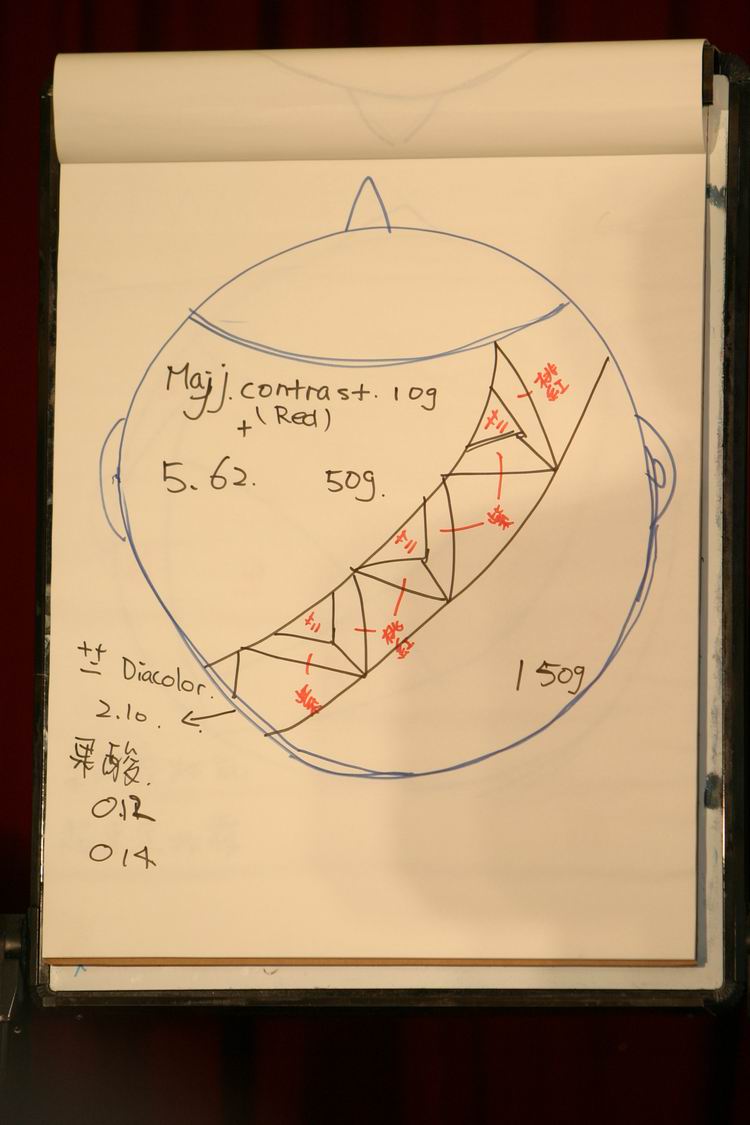 Majj. contrast. 10g
+ (Red)
5.62. 50g.
桃
紅
艹二
紫
艹二
桃
紅
艹二
紫
150g
艹二 Diacolor.
2.10.
果酸.
0.12
014